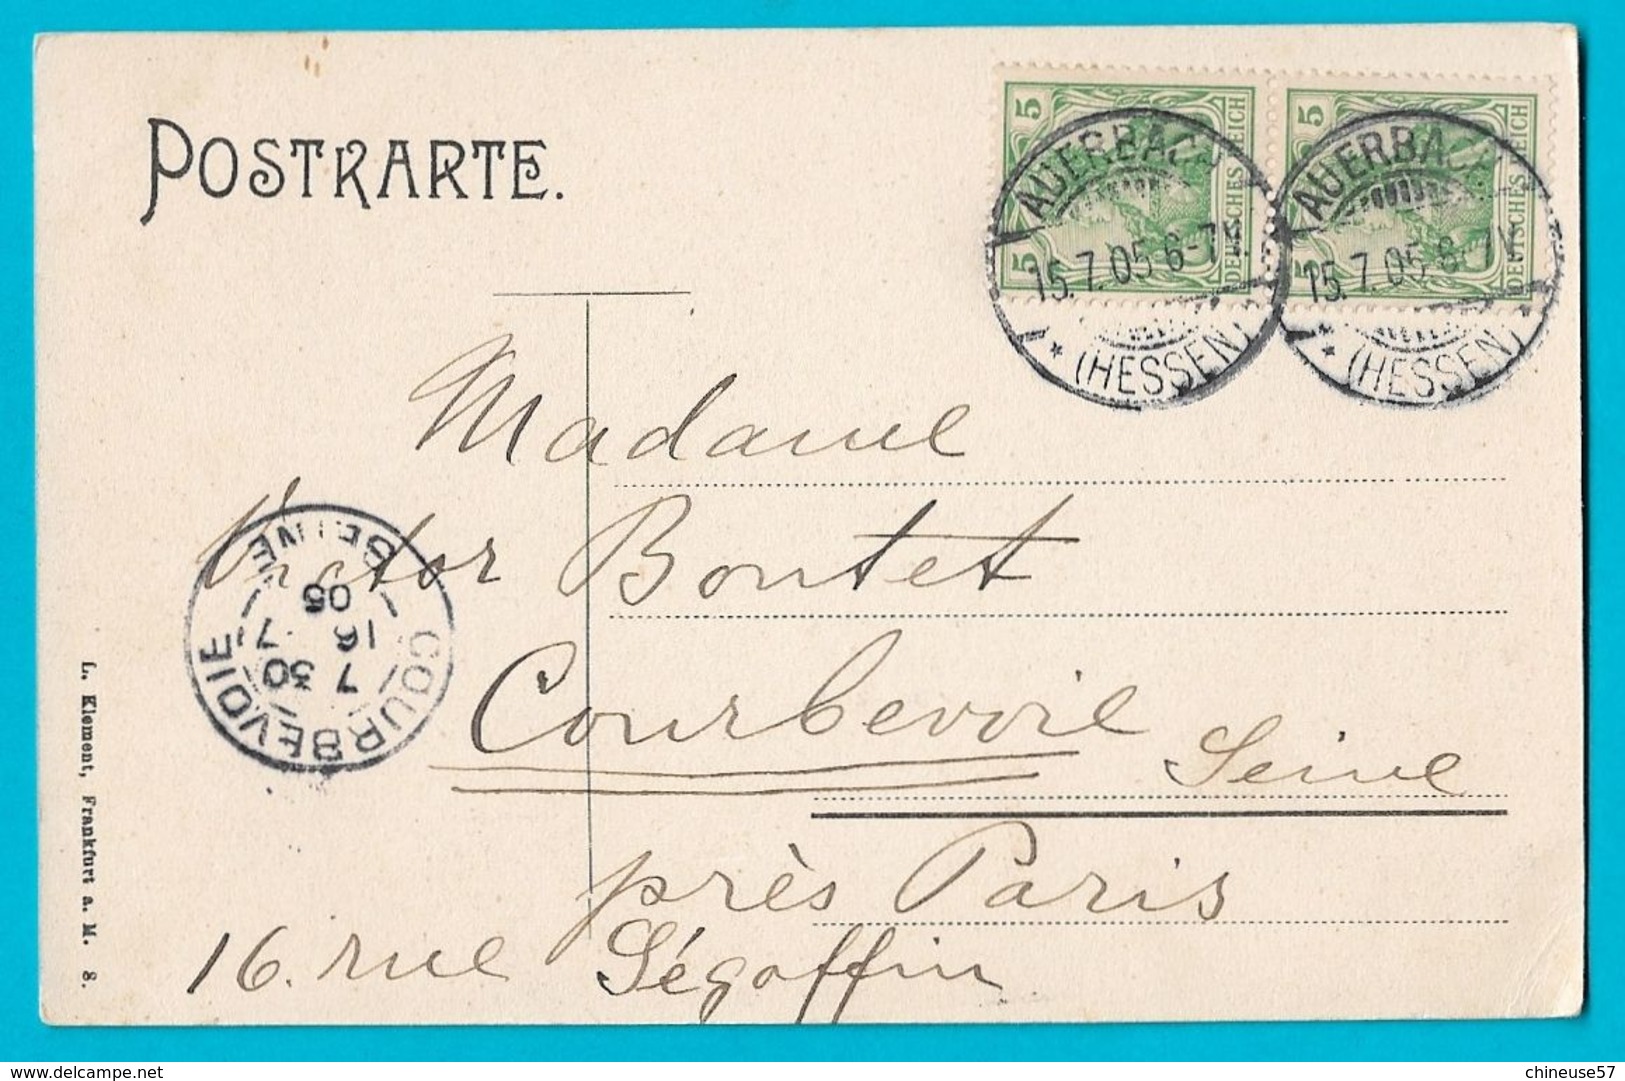 POSTKARTE.
5 5 DEUTSCHES REICH
5 5 DEUTSCHES REICH
AUERBACH
15.7.05 6-7N.
* (HESSEN)
AUERBACH
15.7.05 6-7N
* (HESSEN)
Madame
Victor Bontet
Courbevoie Seine
près Paris
16. rue Ségoffin
COURBEVOIE
7 30
16 7
05
SEINE
L. Klement, Frankfurt a. M. 8.
delcampe.net
chineuse57